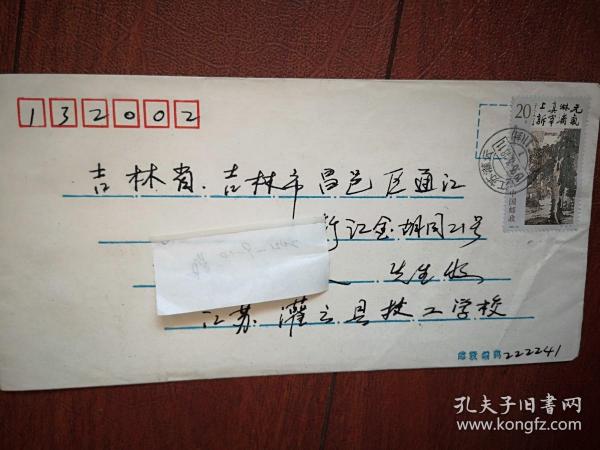 132002
20
元氣淋
真宰
上
中国邮政
吉林省.吉林市昌邑区通江
江金.胡同21号
先生收
江苏.灌云县技工学校
邮政编码 222241
孔夫子旧书网
www.kongfz.com